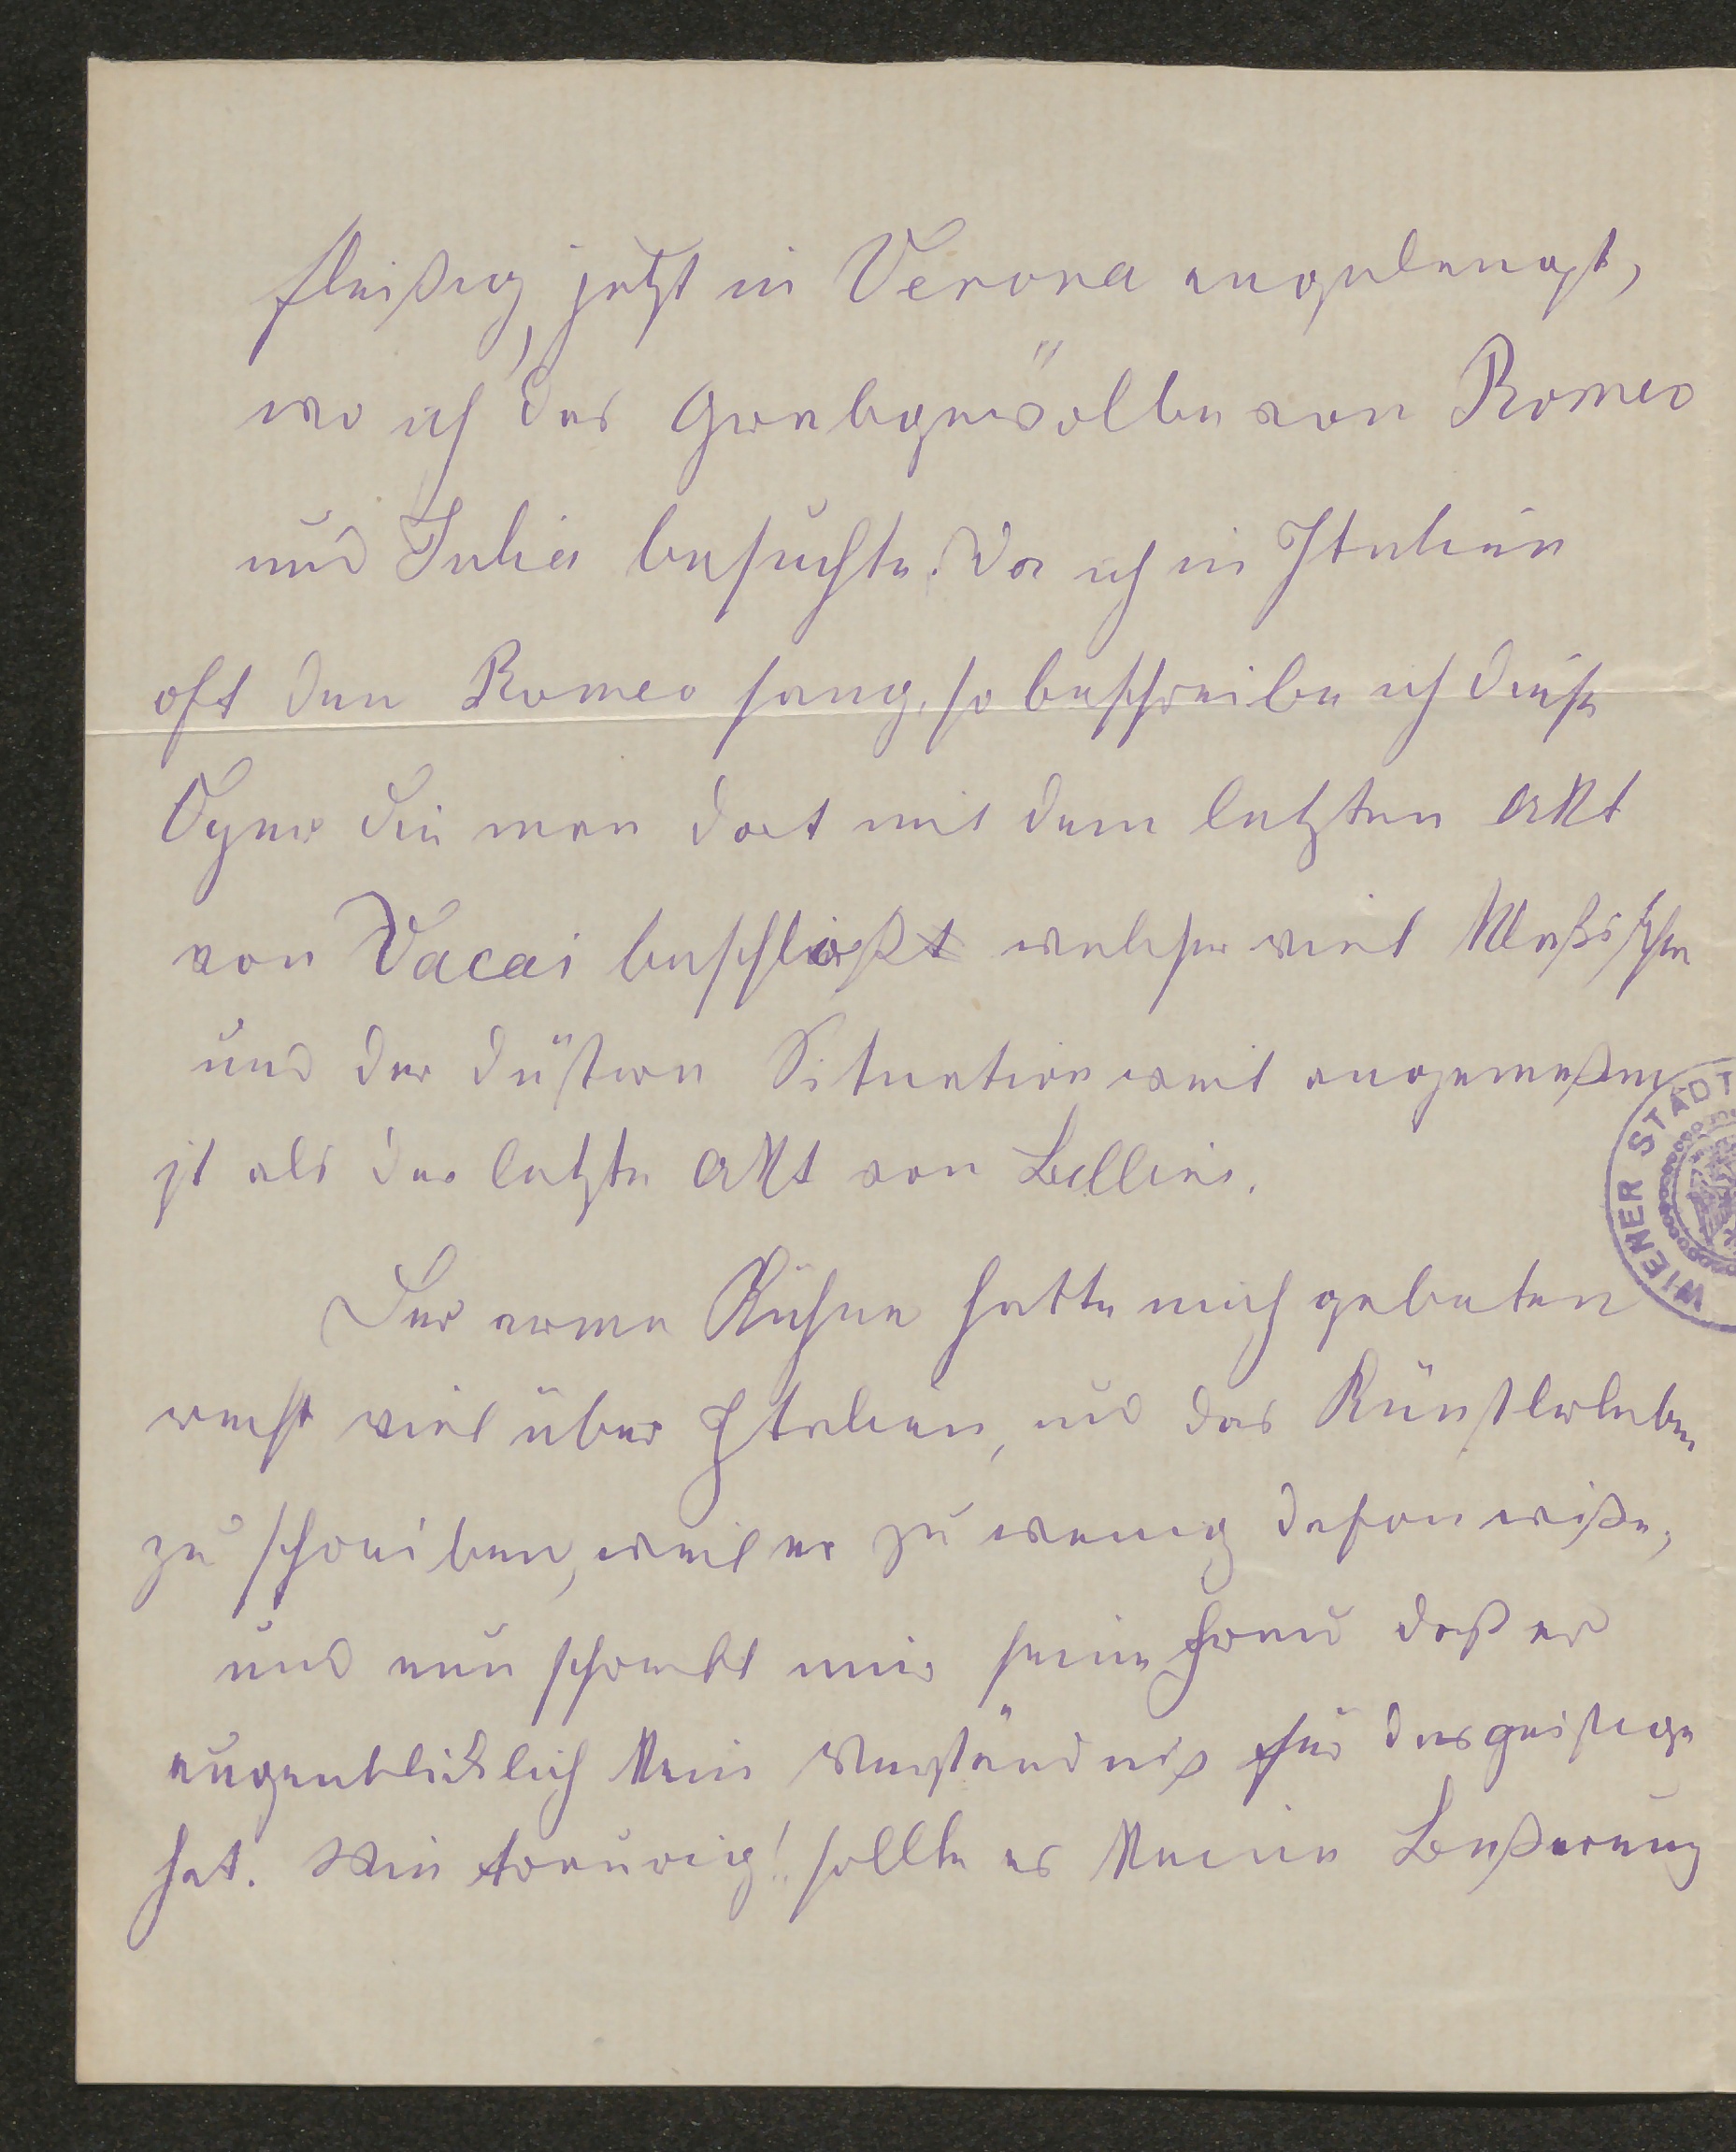 fleißig, jetzt in Verona angelangt,
wo ich das Grabgewölbe von Romeo
und Julia besuchte. Da ich in Italien
oft den Romeo sang, so beschreibe ich diese
Oper die man dort mit dem letzten Akt
von Vacai beschließt welcher viel klaßischer
und der düstern Situation weit angemeßener
ist als der letzte Akt von Bellini.
Der arme Kühne hatte mich gebeten
recht viel über Italien, und das Künstlerleben
zu schreiben, weil er zu wenig dafon wiße,
und nun schreibt mir seine Frau daß er
augenblicklich kein Verständnis für das geistige
hat. Wie traurig! sollte es keine Beßerung
WIENER STADT